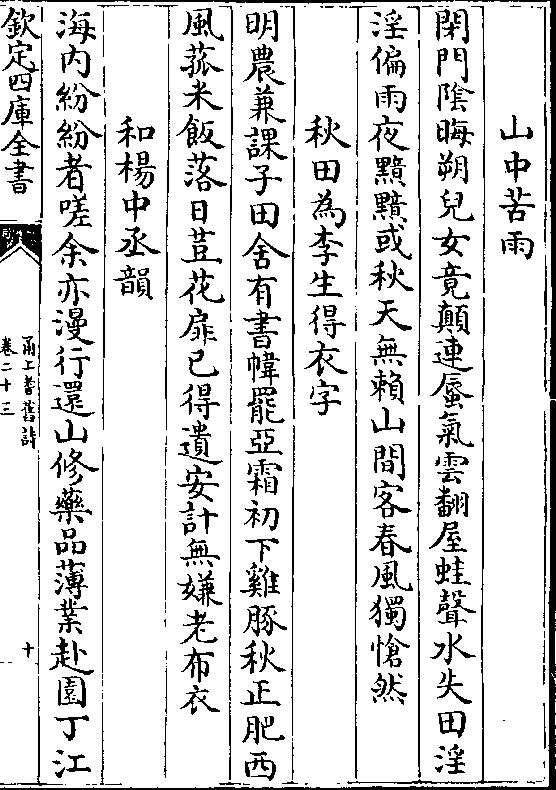 山中苦雨
閉門陰晦朔兒女竟顛連蜃氣雲翻屋蛙聲水失田淫
淫偏雨夜黯黯或秋天無賴山間客春風獨愴然
秋田為李生得衣字
明農兼課子田舍有書幃罷亞霜初下雞豚秋正肥西
風菰米飯落日荳花扉已得遺安計無嫌老布衣
和楊中丞韻
海内紛紛者嗟余亦漫行還山修藥品薄業赴園丁江
欽定四庫全書
甬上耆舊詩
卷二十三
十